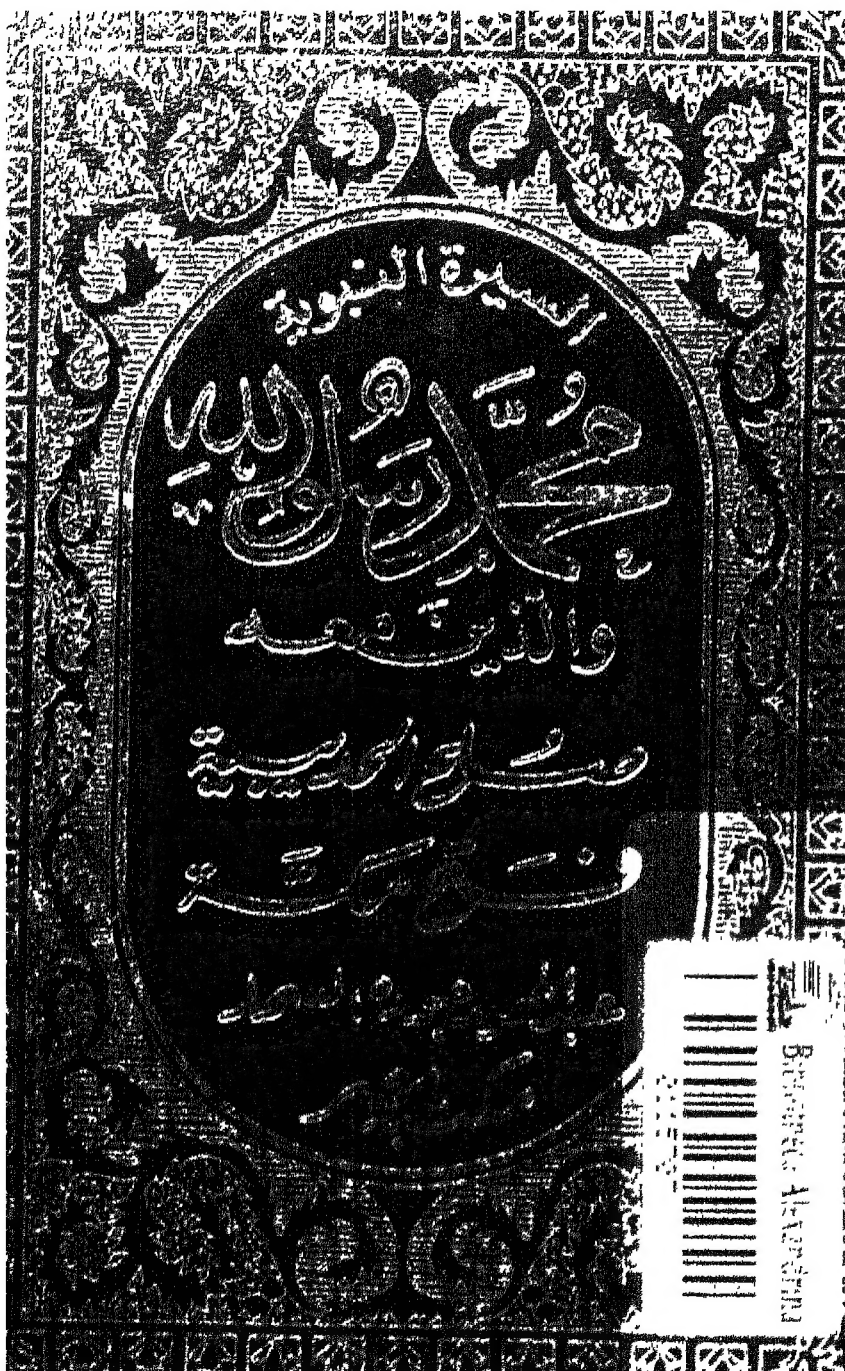 السيرة النبوية
مُحَمَّدٌ رَسُولُ اللهِ
والذين معه
صُلح الحديبية
فتح مكة
عبد الحميد جوده السحار
Bibliotheca Alexandrina